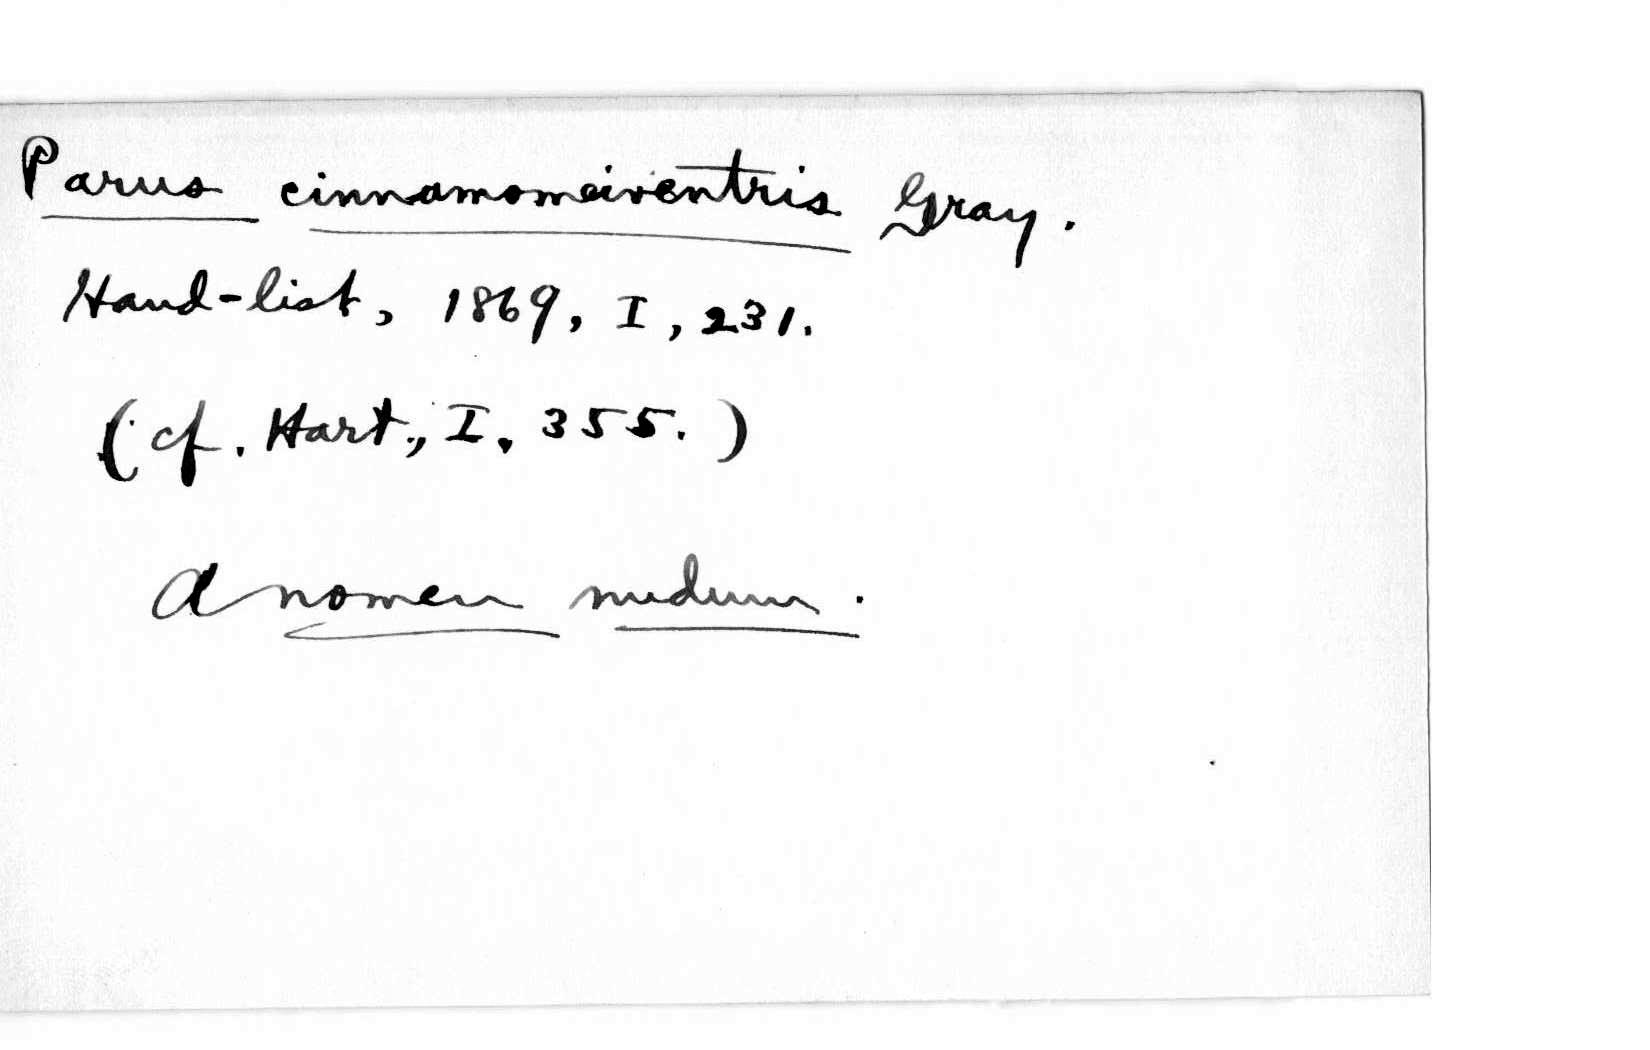 Parus cinnamomeiventris Gray.
Hand-list, 1869, I, 231.
(cf. Hart., I. 355.)
A nomen nudum.